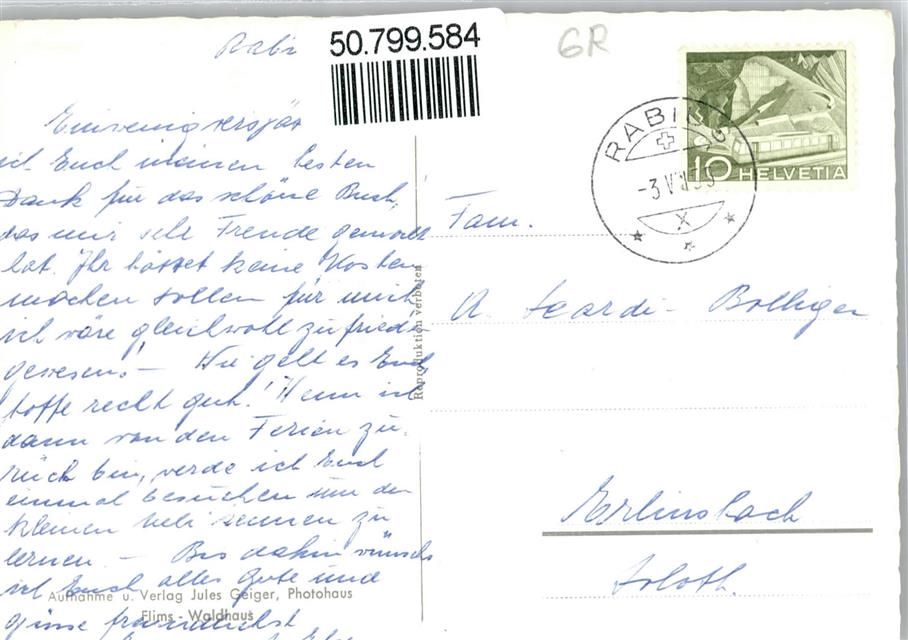 Rabi
50.799.584
GR
RABIUS
-3.VII.53
X
10 HELVETIA
Ein wenig verspät
ich Euch meinen besten
Dank für das schöne Buch,
das mir sehr Freude gemacht
hat. Ihr hättet keine Kosten
machen sollen für mich
ich wäre gleichwohl zufrieden
gewesen! — Wie geht es Euch,
hoffe recht gut! Wenn ich
dann von den Ferien zu-
rück bin, werde ich Euch
einmal besuchen um den
kleinen kennen zu
lernen. — Bis dahin wünsche
ich Euch alles Gute und
grüsse freundlichst
Reproduktion verboten
Fam.
A. Bolliger
Erlinsbach
Soloth.
Aufnahme u. Verlag Jules Geiger, Photohaus
Flims - Waldhaus